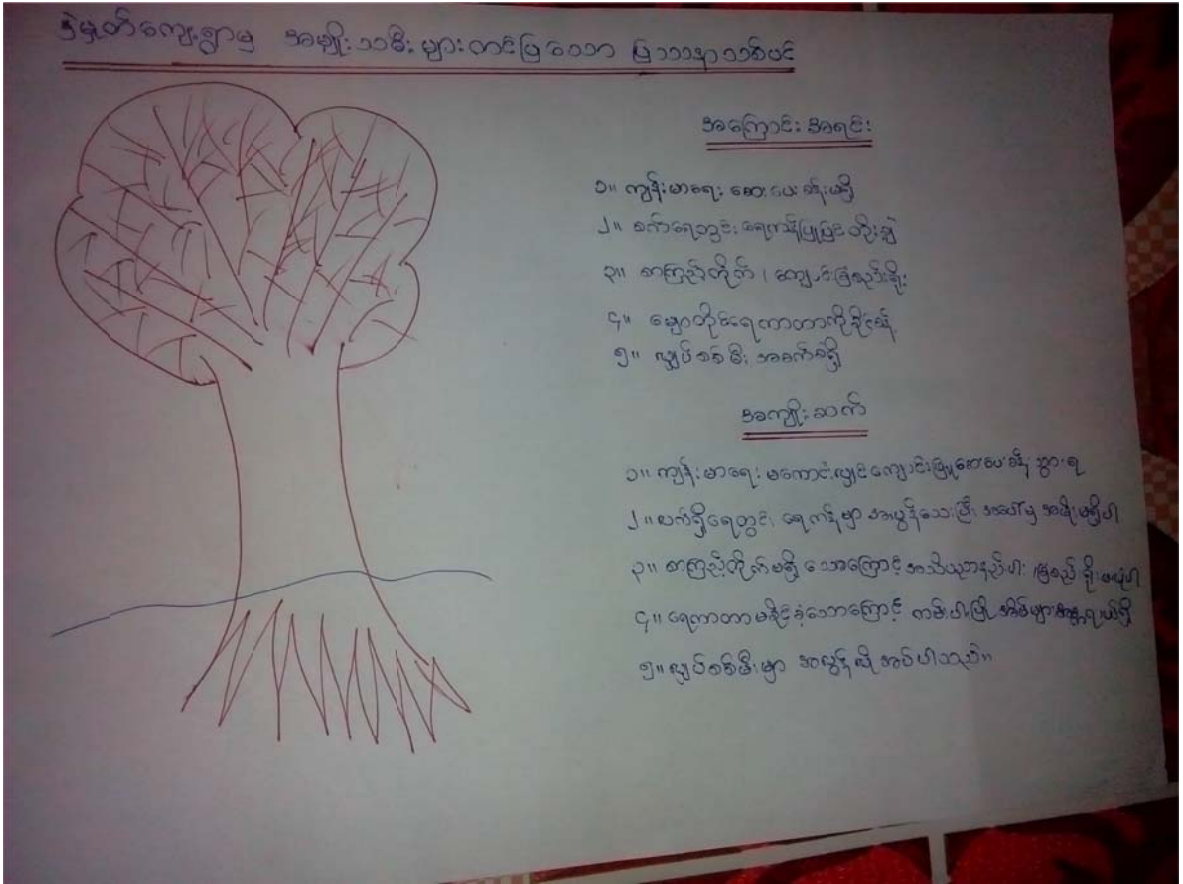 ကျေးရွာမှ အမျိုးသမီးများတင်ပြသော ပြဿနာသစ်ပင်
အကြောင်းအရင်း
၁။ ကျန်းမာရေး ဆေးပေးခန်းမရှိ
၂။ စက်ရေတွင်း ရေကန်ပြုပြင် တိုးချဲ့
၃။ စာကြည့်တိုက်၊ ကျောင်းခြံစည်းရိုး
၄။ ရေကာတာ
၅။ လျှပ်စစ်မီး အခက်ခဲရှိ
အကျိုးဆက်
၁။ ကျန်းမာရေး မကောင်းလျှင် ဆေးပေးခန်း သွားရ
၂။ လက်ရှိရေတွင်း ရေကန်မှာ အလွန်သေးပြီး အပေါ်မှ အမိုးမရှိပါ
၃။ စာကြည့်တိုက်မရှိသောကြောင့် အသိပညာနည်းပါး ခြံစည်းရိုးမလုံပါ
၄။ ရေကာတာမခိုင်ခံ့သောကြောင့် ကမ်းပါးပြို အိမ်များအန္တရာယ်ရှိ
၅။ လျှပ်စစ်မီးမှာ အလွန်လိုအပ်ပါသည်။